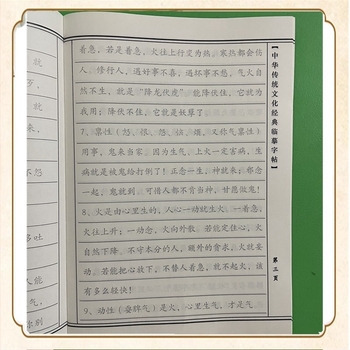 着急，若是着急，火往上行变为热，寒热都会伤
人。修行人，遇好事不喜，遇坏事不怒，气火自
然不生，就是“降龙伏虎”。能降伏住，它就为
我用；降伏不住，它就是妖孽了。
7、禀性（怨、恨、恼、烦，又称气禀性）
用事，鬼来当家。因为生气、上火一定害病，生
病就是被鬼给打倒了！正念一生，神就来；邪念
一起，鬼就到。可惜人都不肯当神，甘愿做鬼！
8、火是由心里生的，人心一动就生火。一着急，
火往上升；一动念，火向外散。若能定住心，火
自然下降。不守本分的人，额外的贪求，火就妄
动。若能把心放下，不替人着急，就不起火，该
有多么轻快！
9、动性（耍脾气）是火，心里生气，才是气
【中华传统文化经典临摹字帖】
第三页
就
，
就
来，
不怨
多吐
人能
气，
常别